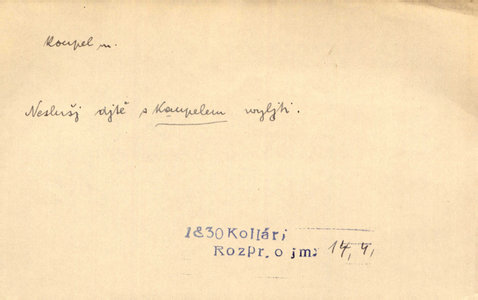 koupel m.
Neslušj djtě s Kaupelem wyljti.
1830 Kollár,
Rozpr. o jm: 14, 4,